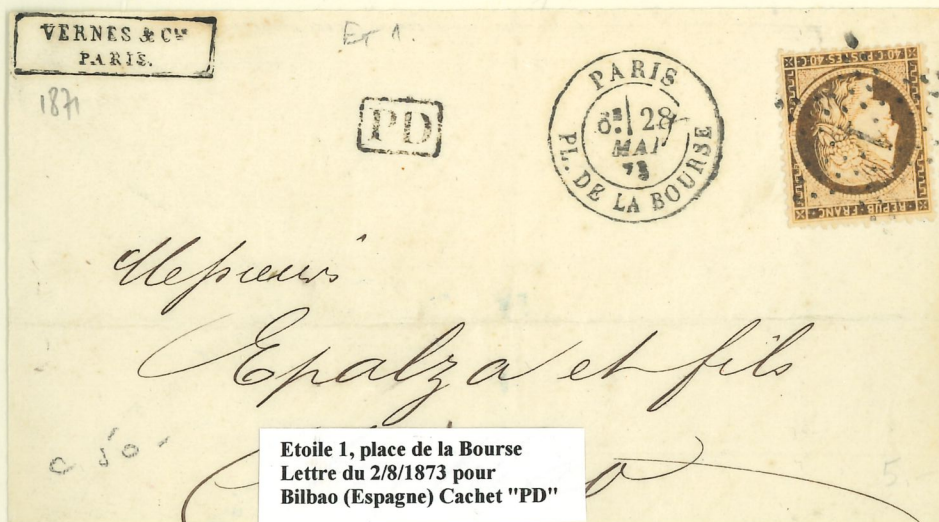 VERNES & Cie
PARIS.
Et 1.
1871
PD
PARIS
6E 28
MAI
73
PL. DE LA BOURSE
40 C POSTES 40 C
REPUB FRANC
1
Messieurs
Epalza et fils
c 50-
5.
Etoile 1, place de la Bourse
Lettre du 2/8/1873 pour
Bilbao (Espagne) Cachet "PD"